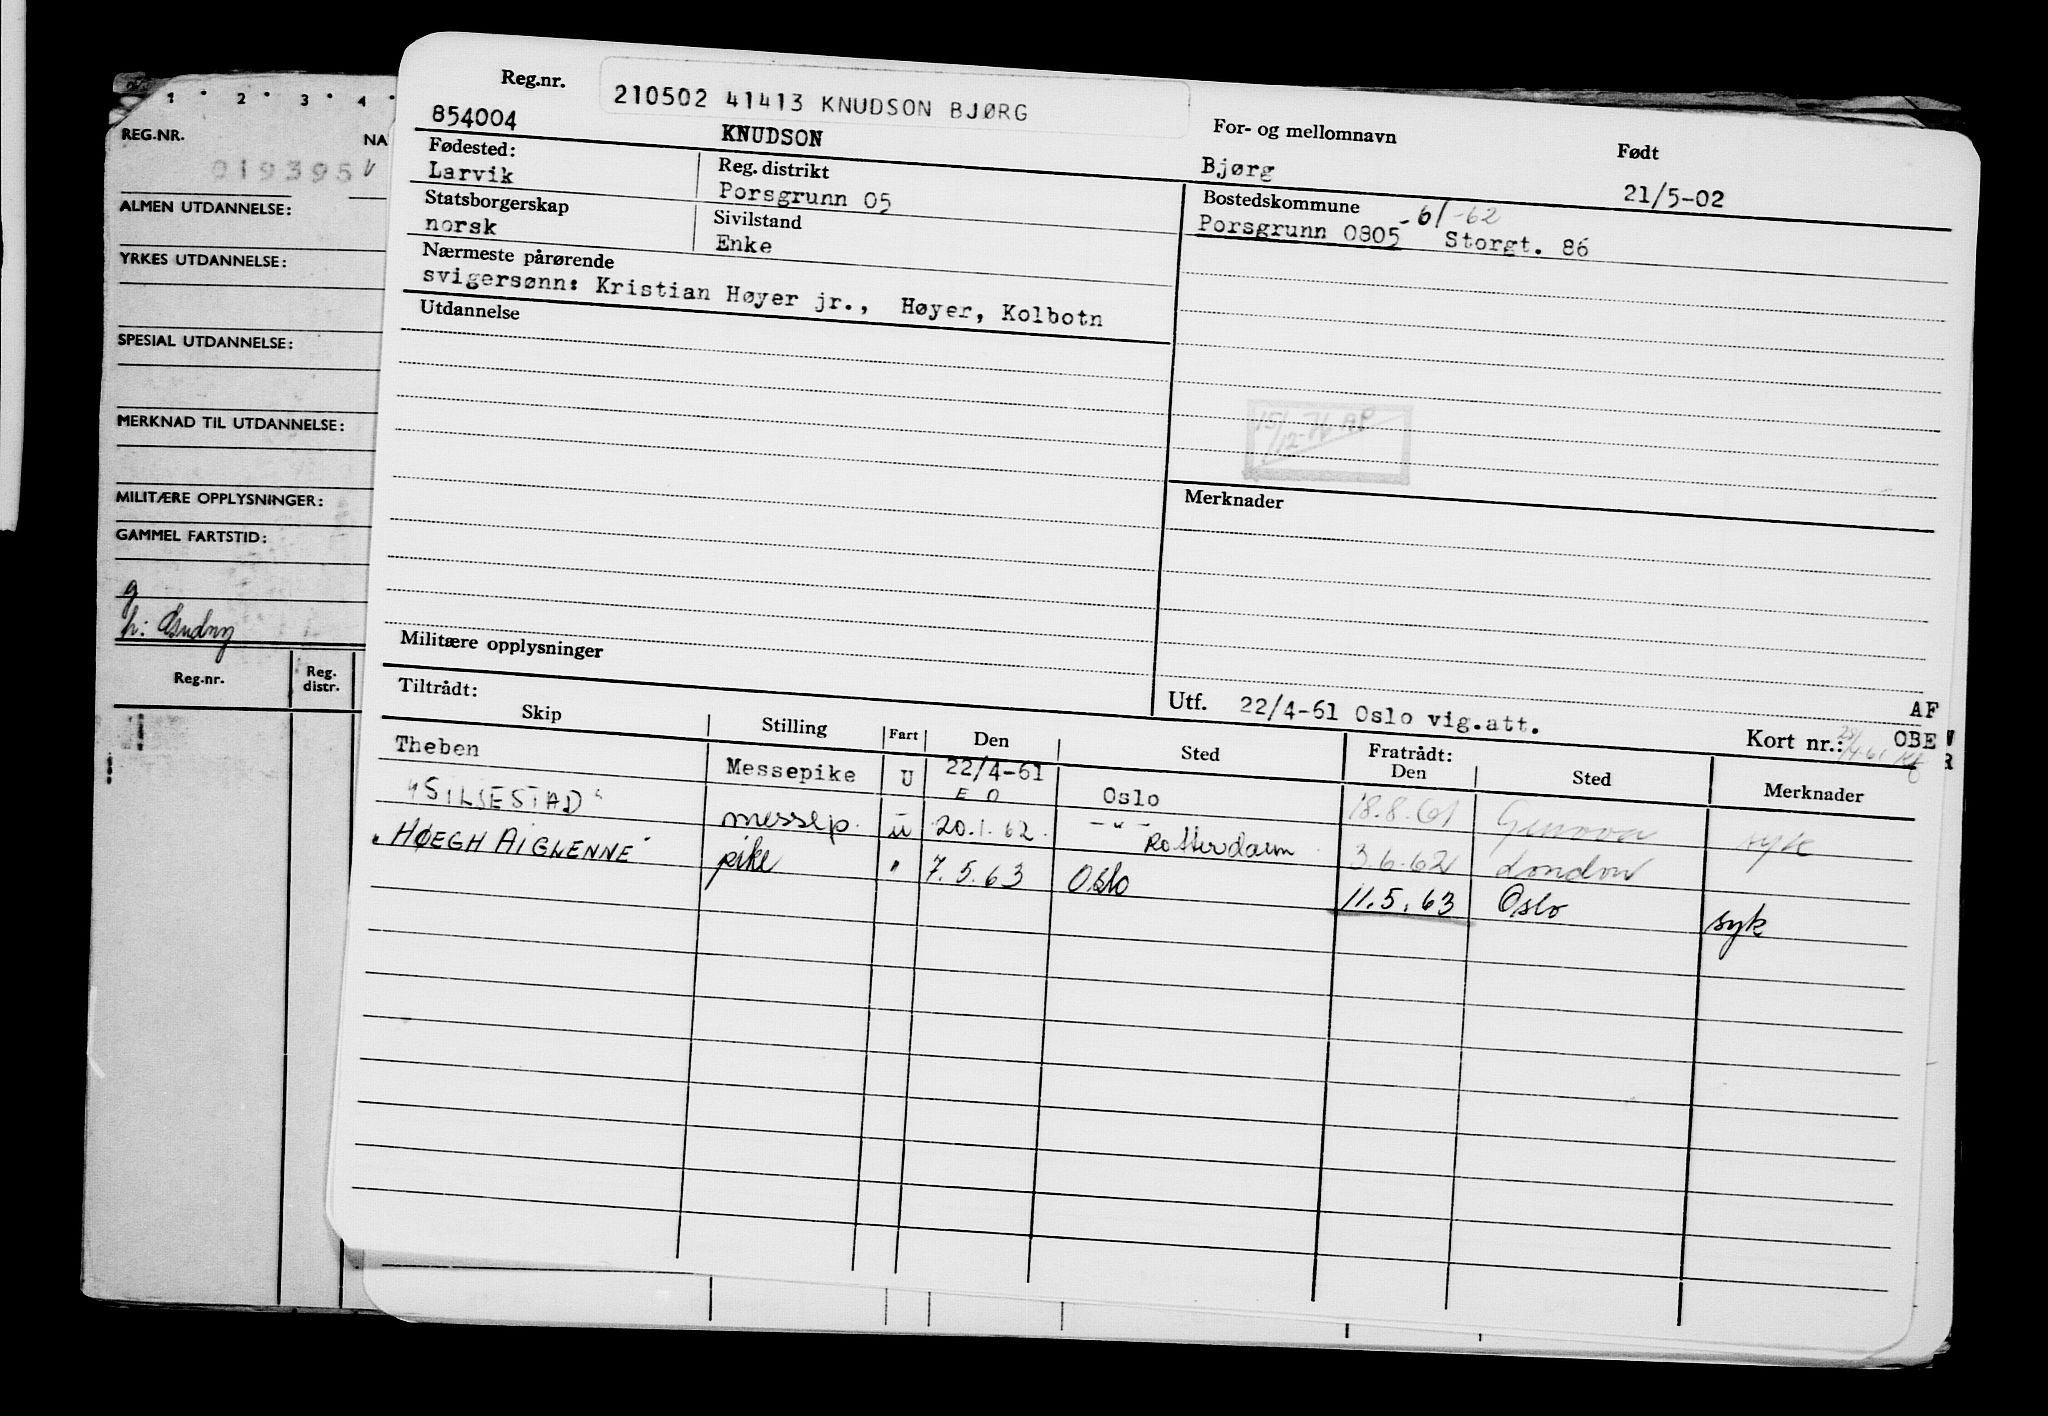 1 · 2 · 3 · 4 ·
REG.NR.
NA
019395
ALMEN UTDANNELSE:
YRKES UTDANNELSE:
SPESIAL UTDANNELSE:
MERKNAD TIL UTDANNELSE:
MILITÆRE OPPLYSNINGER:
GAMMEL FARTSTID:
g
h:
Reg.nr.
Reg. distr.
Reg.nr.
210502 41413 KNUDSON BJØRG
For- og mellomnavn
Født
854004
KNUDSON
Bjørg
21/5-02
Fødested:
Larvik
Reg. distrikt
Porsgrunn 05
Bostedskommune
Porsgrunn 0805 -61-62 Storgt. 86
Statsborgerskap
norsk
Sivilstand
Enke
Nærmeste pårørende
svigersønn: Kristian Høyer jr., Høyer, Kolbotn
Utdannelse
15/12-76 AP
Merknader
Militære opplysninger
Utf. 22/4-61 Oslo vig.att.
AF
Tiltrådt:
Kort nr.:
OBE
Skip
Stilling
Fart
Den
Sted
Fratrådt:
Den
Sted
Merknader
Theben Messepike U 22/4-61 Oslo 18.8.61 Genova syk
E O
"SILJESTAD" messep. u 20.1.62 -"- Rotterdam 3.6.62 London
"HØEGH AIGLENNE" pike " 7.5.63 Oslo 11.5.63 Oslo syk